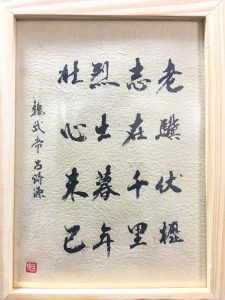 老驥伏櫪
志在千里
烈士暮年
壯心未已
魏武帝古詩源